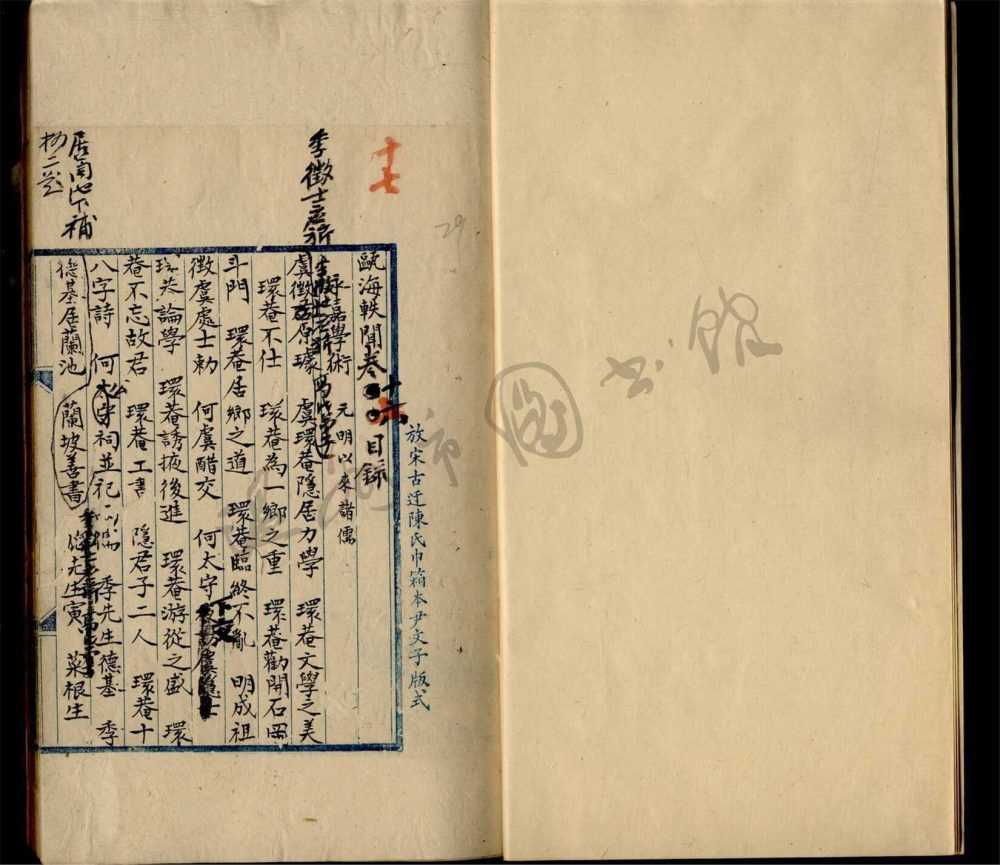 十七
29
放宋古迂陳氏巾箱本尹文子版式
甌海軼聞卷十六目錄
永嘉學術 元明以來諸儒
虞徵君原璩 虞環菴隱居力學 環菴文學之美
環菴不仕 環菴為一鄉之重 環菴勸開石岡
斗門 環菴居鄉之道 環菴臨終不亂 明成祖
徵虞處士勅 何虞醋交 何太守
下文
環菴論學 環菴誘掖後進 環菴游從之盛 環
菴不忘故君 環菴工書 隱君子二人 環菴十
八字詩 何太守祠並祀 季先生德基 季
德基居蘭池 蘭坡善書 先生寅 菜根生
季徵士應祈
補
圖書館